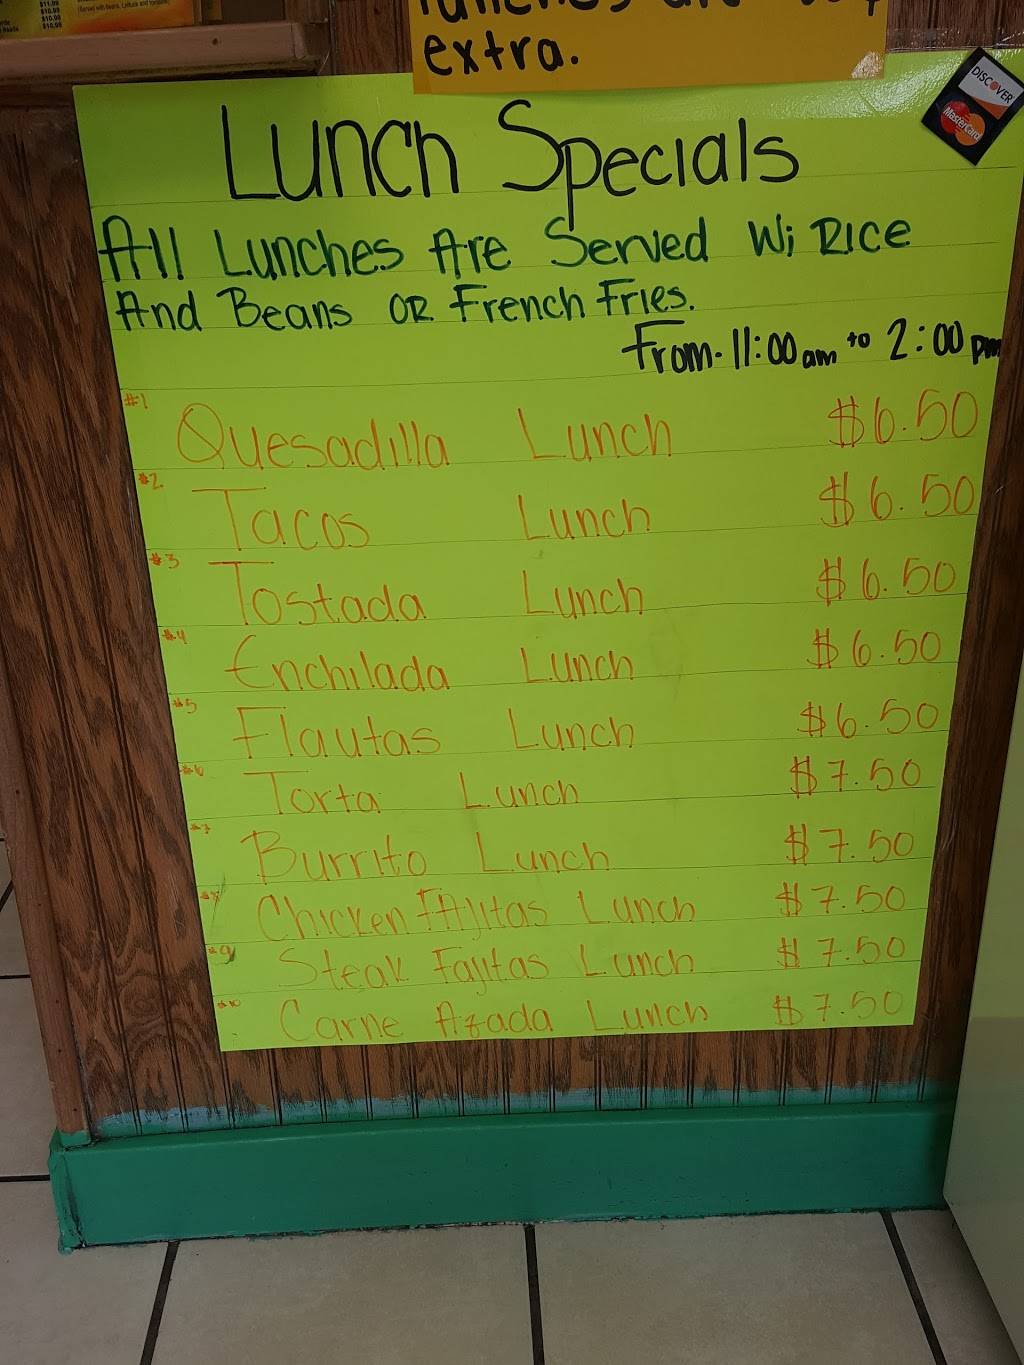 $11.99
$10.99
$10.99
$10.99
extra.
DISCOVER
MasterCard
Lunch Specials
All Lunches Are Served W; Rice
And Beans OR French Fries.
From- 11:00 am to 2:00 pm
#1 Quesadilla Lunch $6.50
#2 Tacos Lunch $6.50
#3 Tostada Lunch $6.50
#4 Enchilada Lunch $6.50
#5 Flautas Lunch $6.50
#6 Torta Lunch $7.50
#7 Burrito Lunch $7.50
#8 Chicken FAjitas Lunch $7.50
#9 Steak Fajitas Lunch $7.50
#10 Carne Azada Lunch $7.50